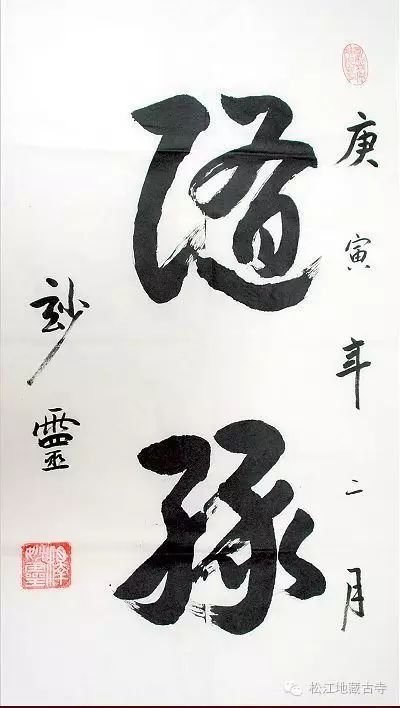 庚寅年二月
随缘
玅靈
松江地藏古寺